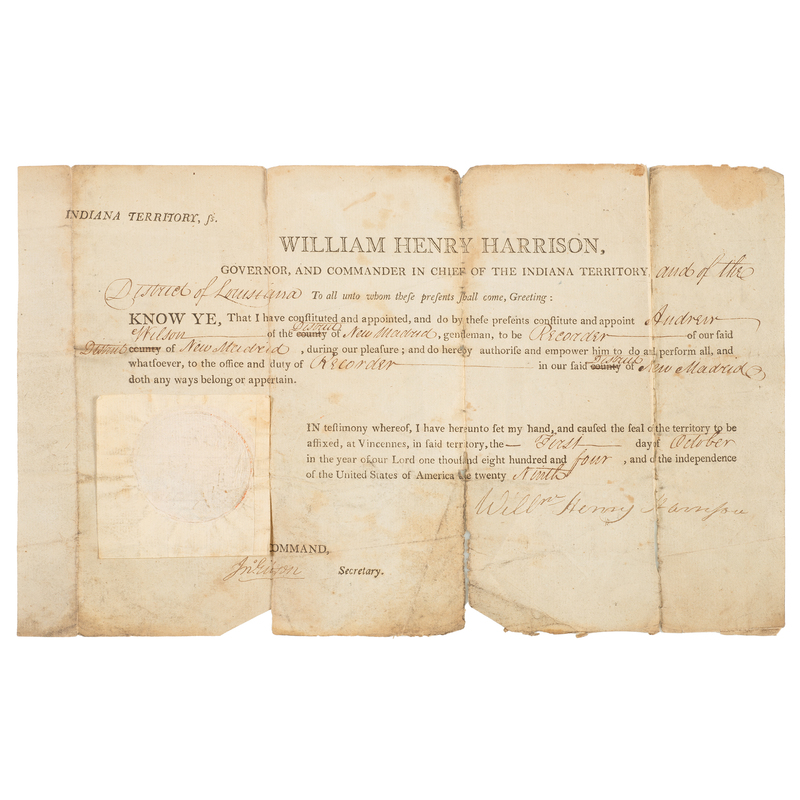 INDIANA TERRITORY, ſs.
WILLIAM HENRY HARRISON,
GOVERNOR, AND COMMANDER IN CHIEF OF THE INDIANA TERRITORY and of the
District of Louisiana To all unto whom theſe preſents ſhall come, Greeting:
KNOW YE, That I have conſtituted and appointed, and do by theſe preſents conſtitute and appoint Andrew
Wilson of the county District of New Madrid, gentleman, to be Recorder of our said
District county of New Madrid, during our pleaſure; and do hereby authoriſe and empower him to do and perform all, and
whatſoever, to the office and duty of Recorder in our ſaid county District of New Madrid
doth any ways belong or appertain.
IN teſtimony whereof, I have hereunto ſet my hand, and cauſed the ſeal o the territory to be
affixed, at Vincennes, in ſaid territory, the First day of October
in the year of our Lord one thouſand eight hundred and four, and o the independence
of the United States of America e twenty Ninth
Willm Henry Harrison
OMMAND,
Jno Gibson Secretary.